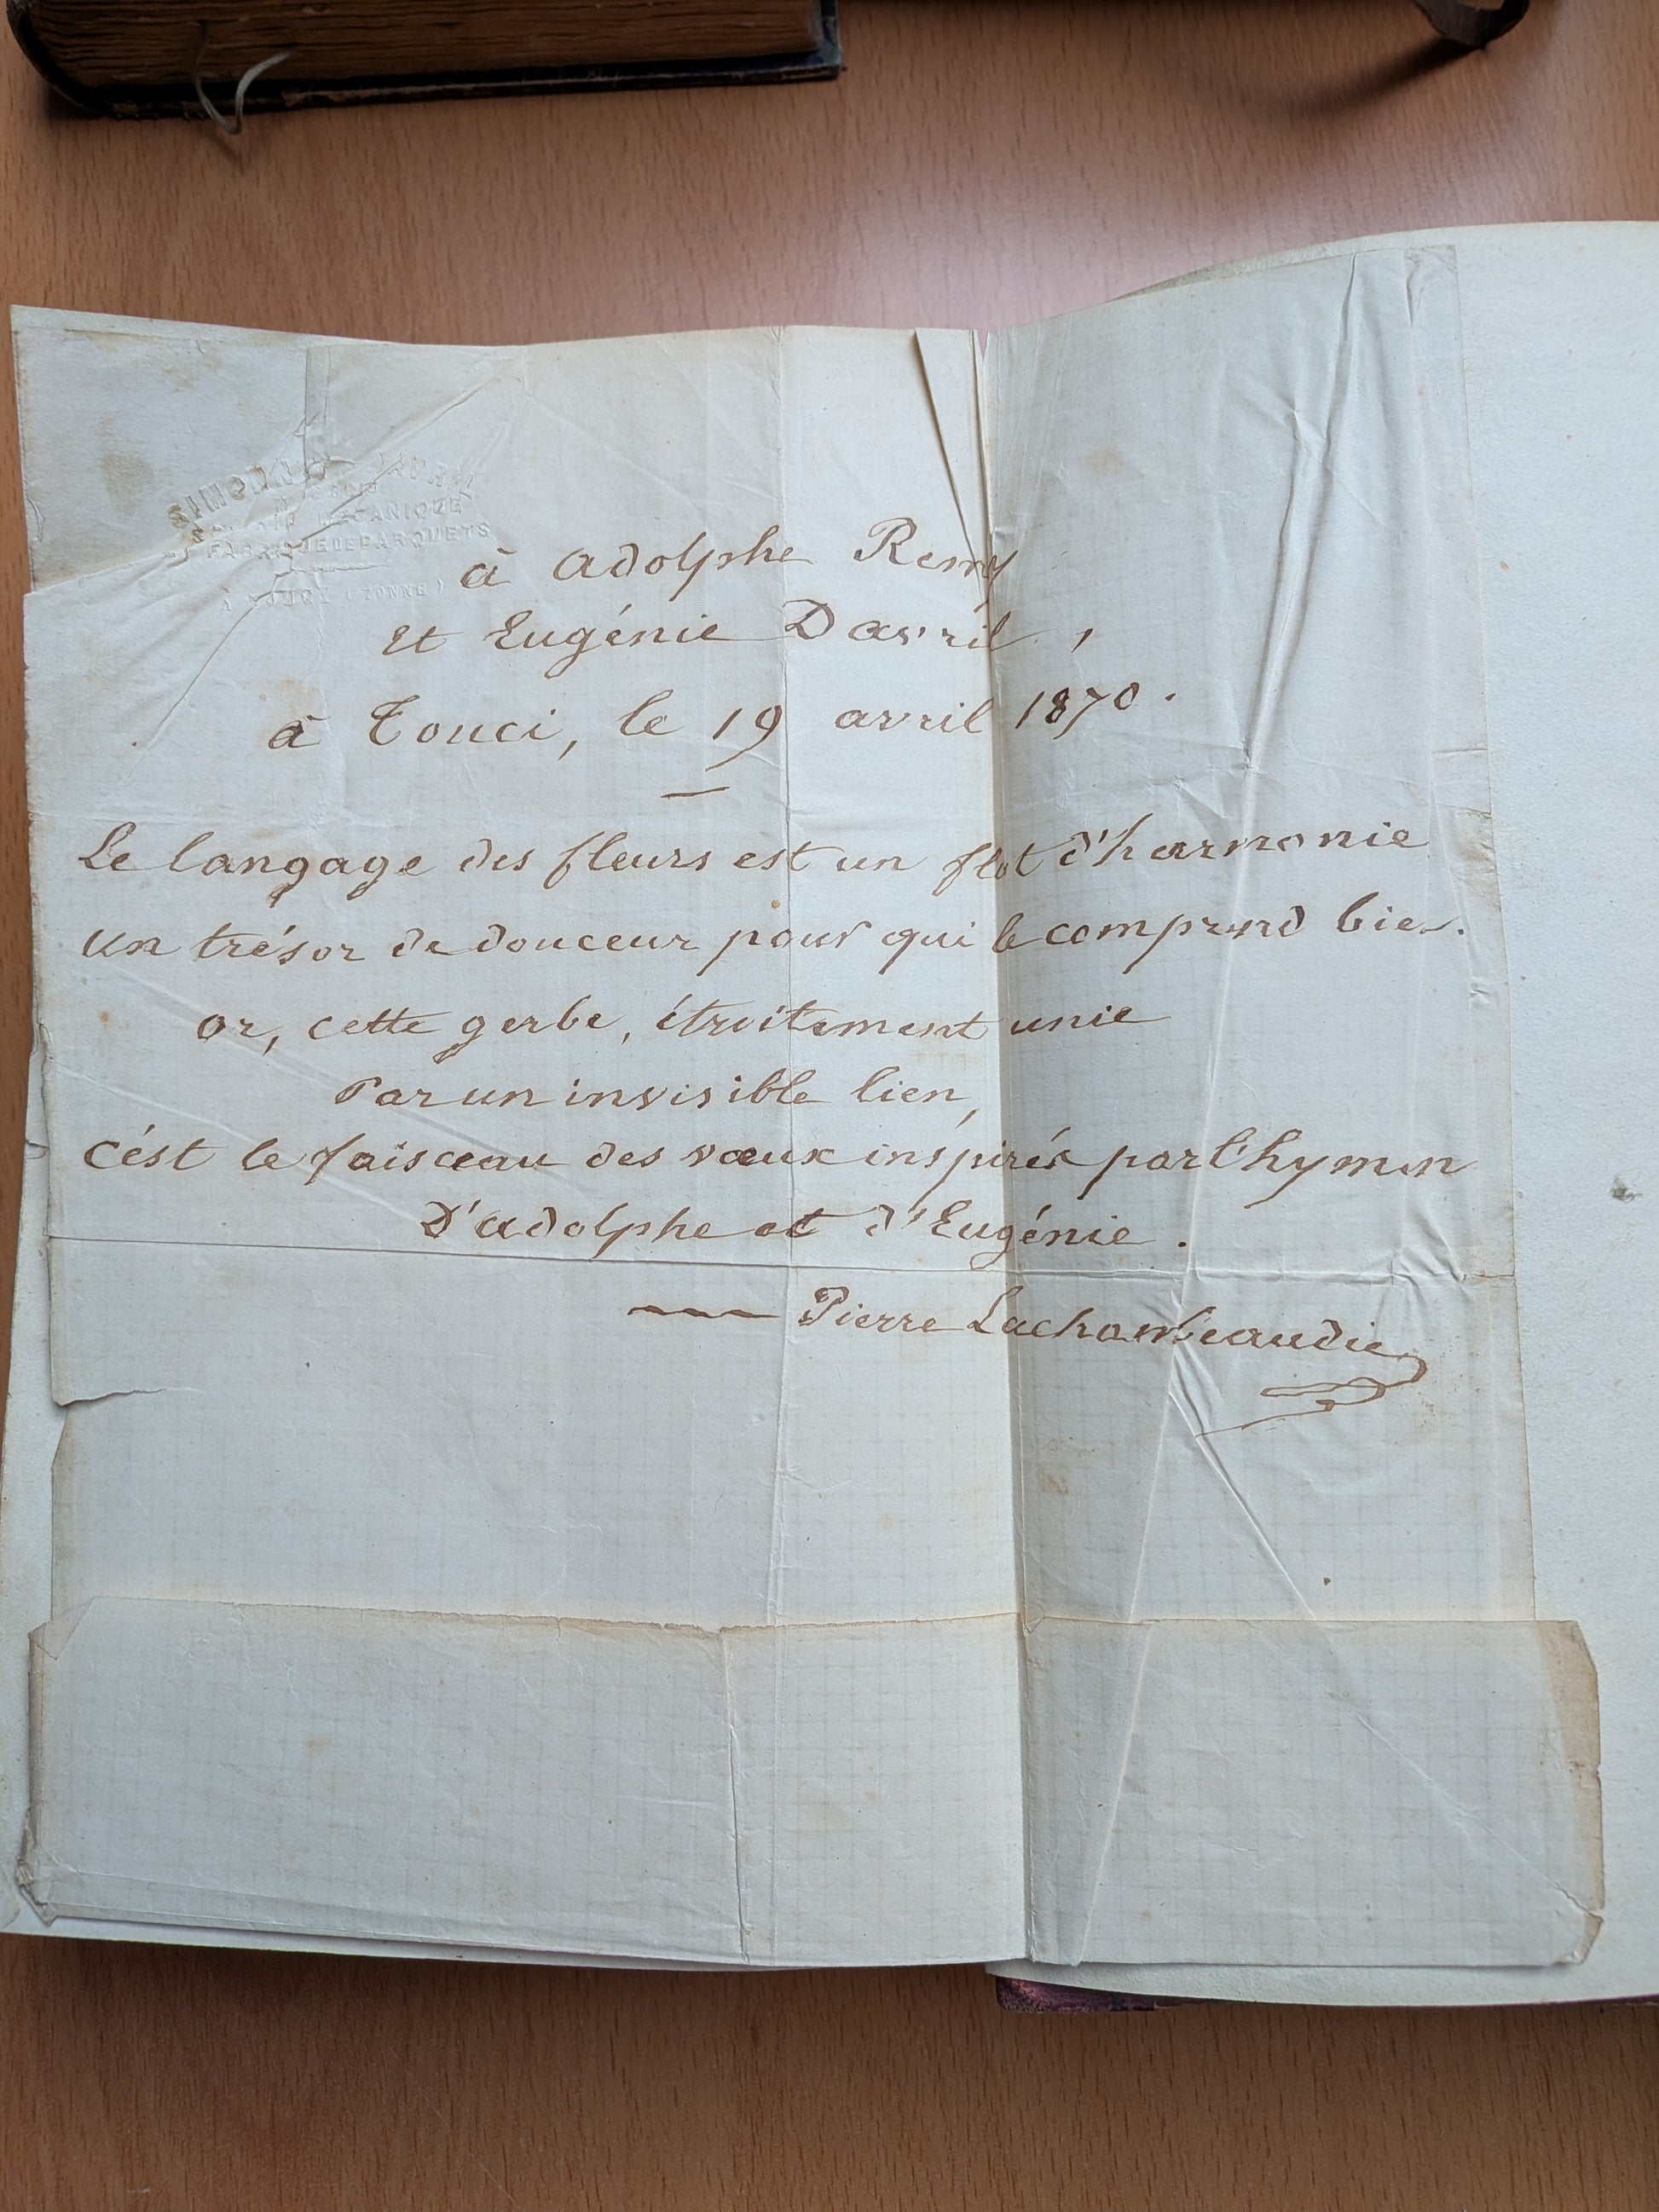 MÉCANIQUE
FABRIQUE DE PARQUETS
(YONNE)
à Adolphe Remy
et Eugénie Davril,
à Touci, le 19 avril 1870.
Le langage des fleurs est un flot d'harmonie
un trésor de douceur pour qui le comprend bien.
or, cette gerbe, étroitement unie
Par un invisible lien,
c'ést le faisceau des vœux inspirés par l'hymen
D'adolphe et d'Eugénie.
Pierre Lachambeaudie